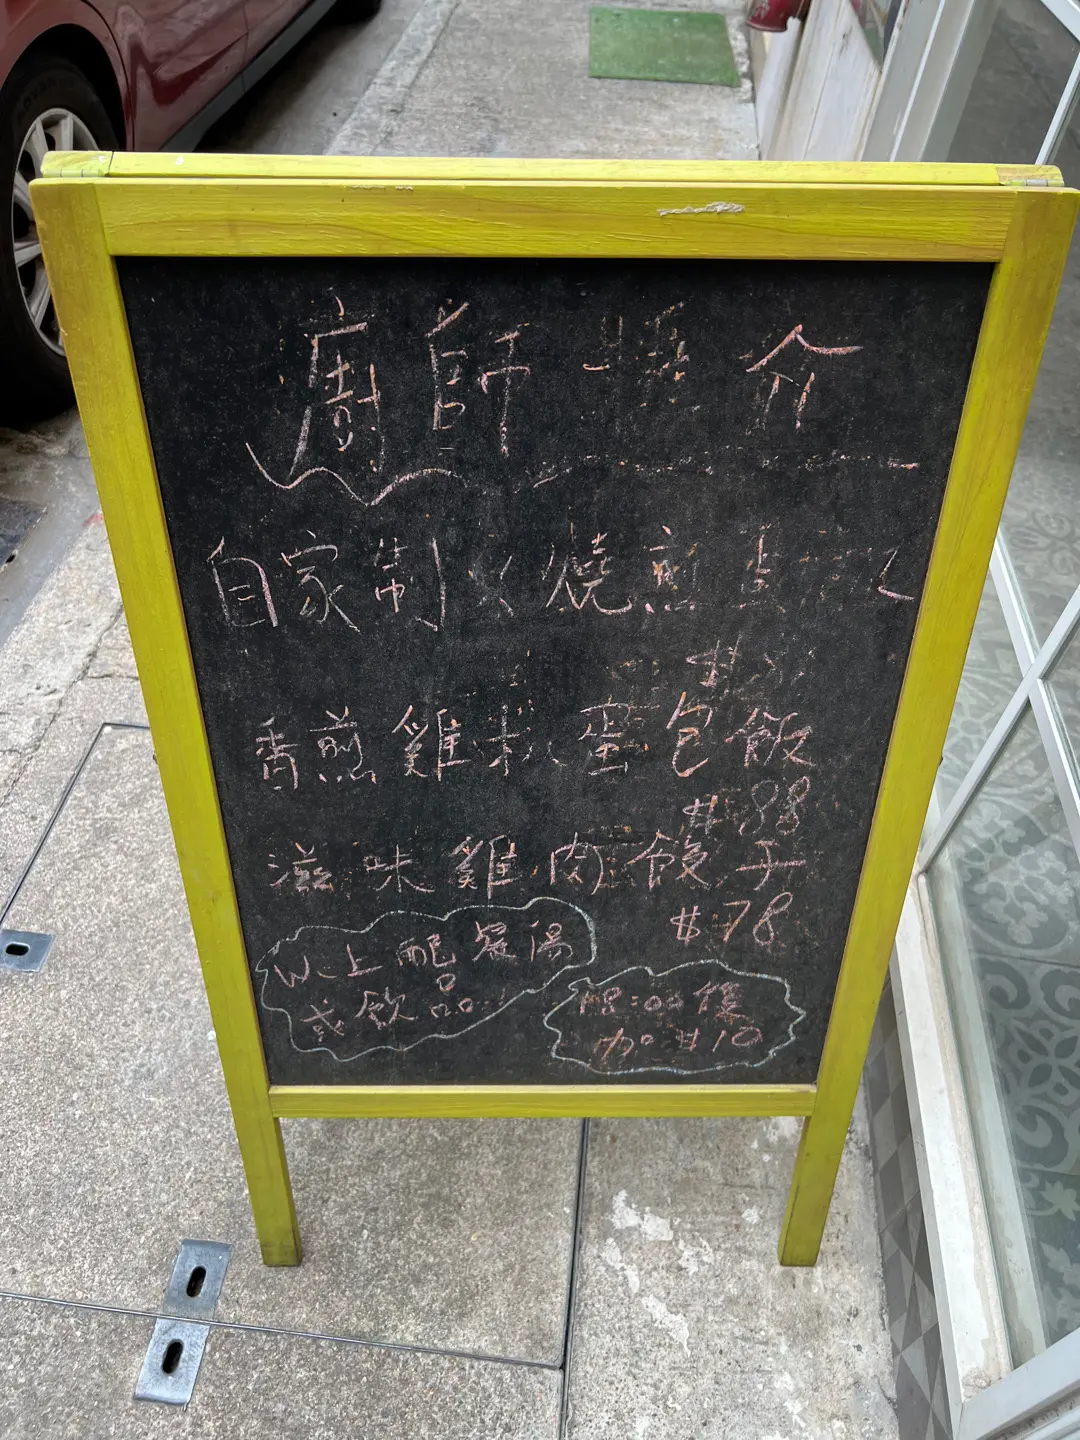 廚師推介
自家制 燒煎
香煎雞扒蛋包飯
$88
滋味雞肉餃子
$78
以上配餐湯
或飲品
加$10